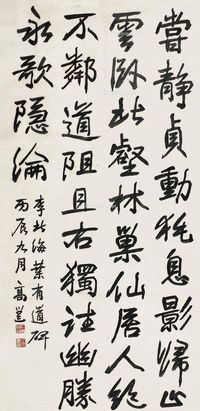 嘗静貞動秏息影歸山
雲卧北壑林巢仙居人絶
不鄰道阻且右獨往幽勝
永歌隱淪
李北海葉有道碑
丙辰九月高逞